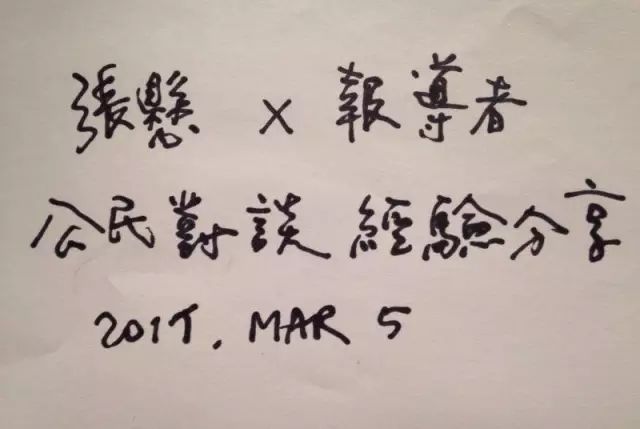 張懸 × 報導者
公民對談 經驗分享
2017. MAR 5